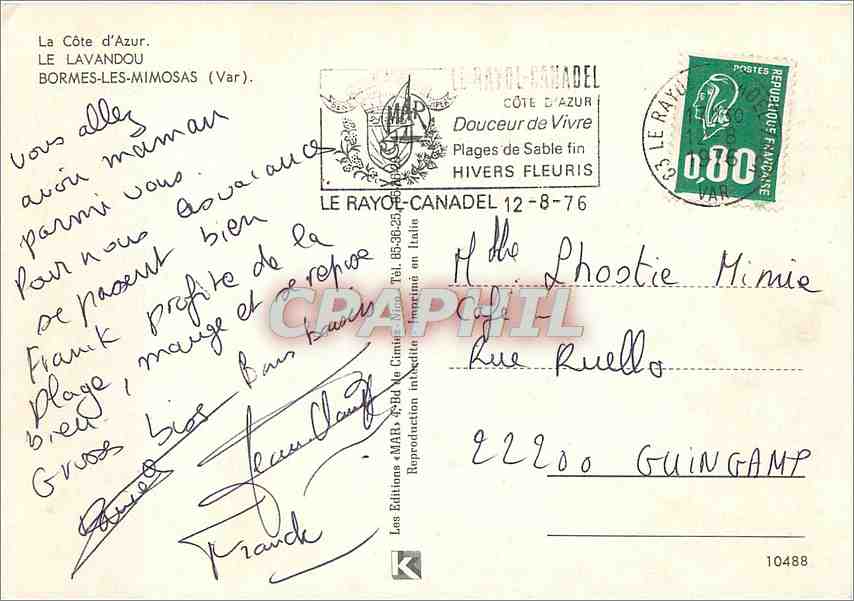 La Côte d'Azur.
LE LAVANDOU
BORMES-LES-MIMOSAS (Var).
vous allez
avoir maman
parmi vous.
Pour nous les vacances
se passent bien
Franck profite de la
plage, mange et se repose
bien.
Grosses bises Bons baisers
Jean Claude
Franck
MAR
LE RAYOL-CANADEL
CÔTE D'AZUR
Douceur de Vivre
Plages de Sable fin
HIVERS FLEURIS
LE RAYOL-CANADEL 12-8-76
83 LE RAYOL
12-8
1976
VAR
POSTES
REPUBLIQUE FRANÇAISE
0,80
Les Editions «MAR» 4, Bd de Cimiez - Nice - Tél. 85-36-25
Reproduction interdite - Imprimé en Italie
CPAPHIL
Mlle Lhostie Mimie
Café -
Rue Ruello
22200 GUINGAMP
K
10488